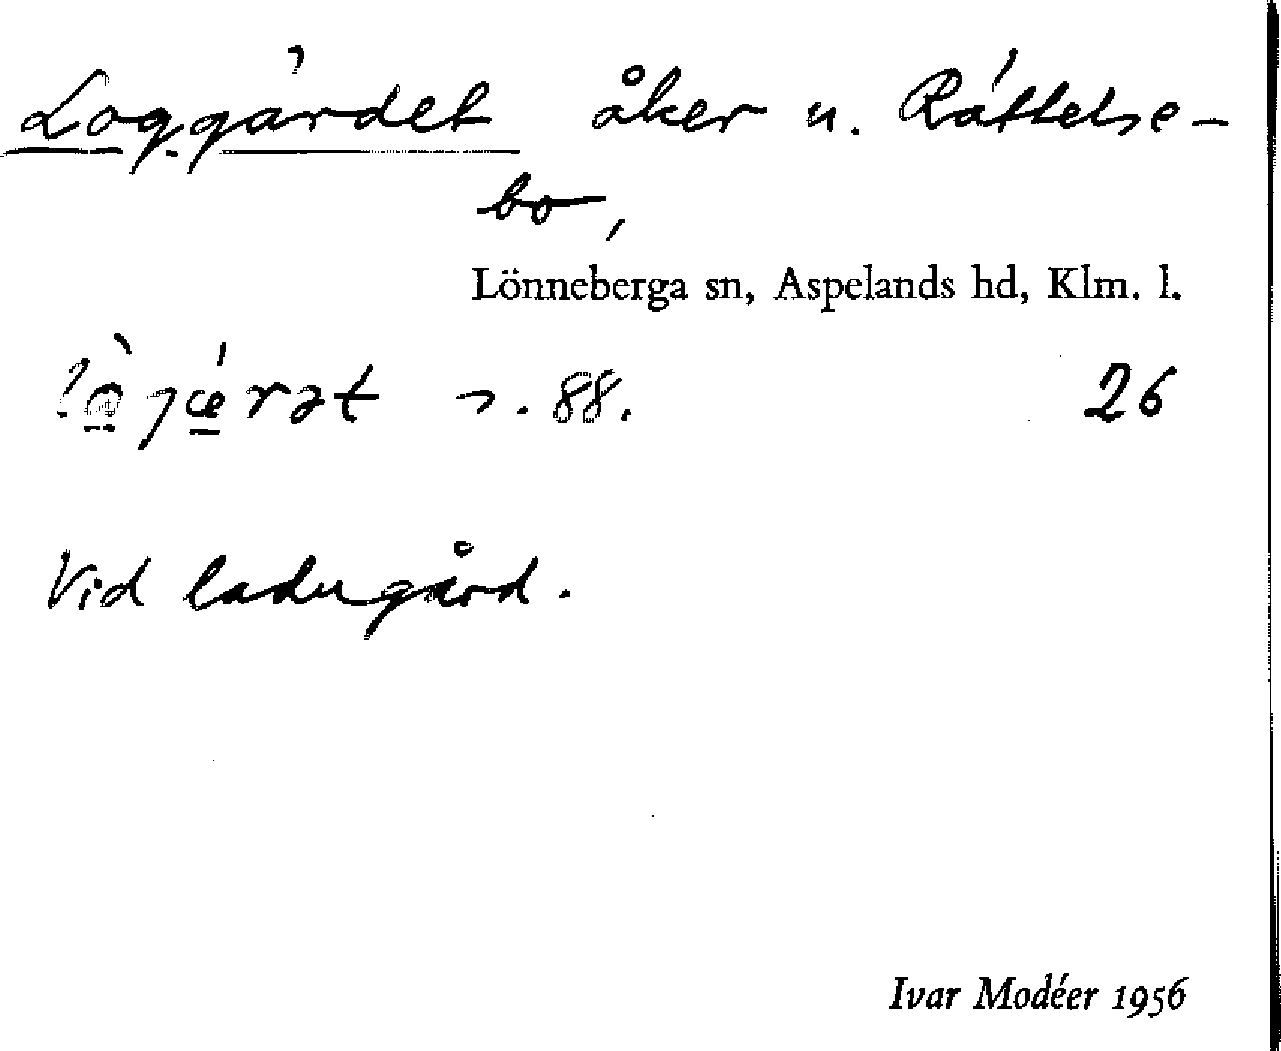 Loggärdet åker u. Rättelse-
bo,
Lönneberga sn, Aspelands hd, Klm. l.
26
Vid ladugård.
Ivar Modéer 1956